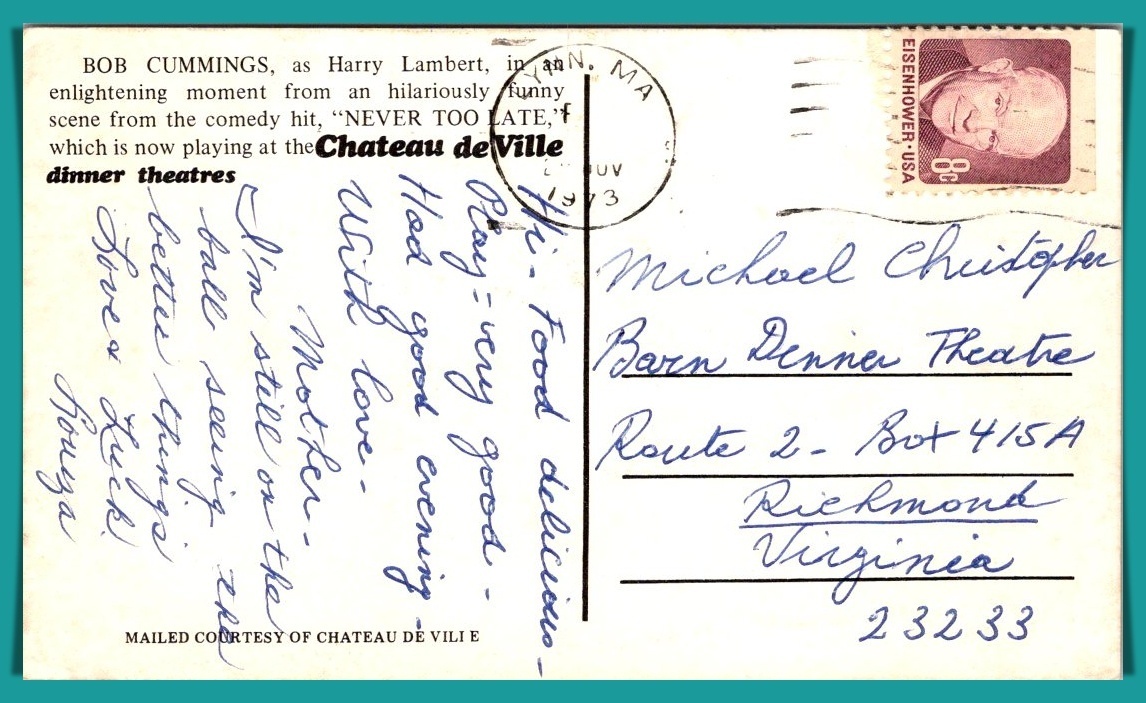 BOB CUMMINGS, as Harry Lambert, in an
enlightening moment from an hilariously funny
scene from the comedy hit, “NEVER TOO LATE,”
which is now playing at the Chateau de Ville
dinner theatres
Hi - Food delicious -
Play - very good -
Had good evening -
With love -
Mother -
I'm still on the
ball seeing the
better things
Loves Luck!
MAILED COURTESY OF CHATEAU DE VILLE
YNN, MA
NOV
1973
EISENHOWER·USA
8c
Michael Christopher
Barn Dinner Theatre
Route 2 - Box 415A
Richmond
Virginia
23233